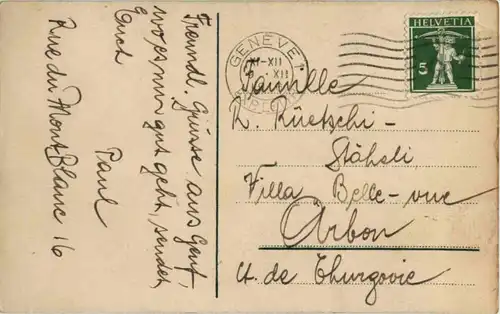 Freundl. Grüsse aus Genf,
wo es mir gut geht, sendet
Euch
Paul
Rue du Mont Blanc 16
GENEVE 1
XI-XII
XII
HELVETIA
5
Famille
R. Rüetschi-
Stähsli
Villa Belle-vue
Arbon
Ct. de Thurgovie